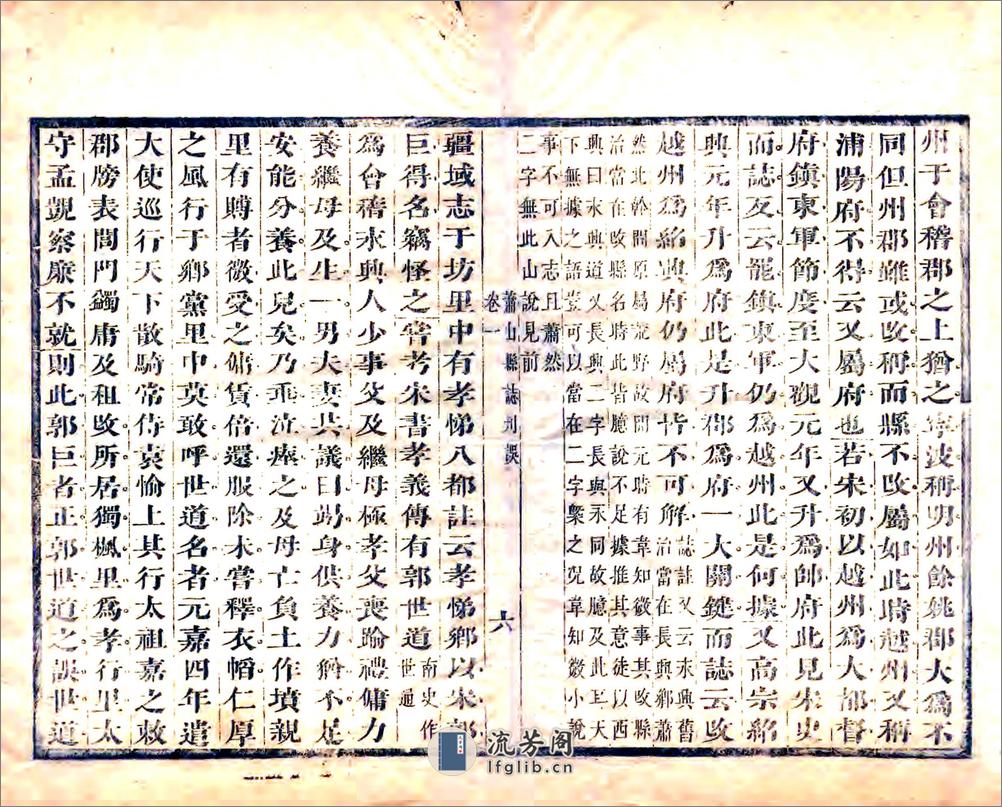 州于會稽郡之上猶之寧波稱明州餘姚郡大爲不
同但州郡雖或改稱而縣不改屬如此時越州又稱
浦陽府不得云又屬府也若宋初以越州爲大都督
府鎮東軍節度至大觀元年又升爲帥府此見宋史
而誌反云罷鎮東軍仍爲越州此是何據又高宗紹
興元年升爲府此是升郡爲府一大關鍵而誌云改
越州爲紹興府仍屬府皆不可解
誌註又云永興舊
治當在長興鄉蕭
然此幹間原屬荒野故問元時有韋知微事其改縣
治當在改縣名時此皆臆說不足據推其意徒以西
興曰永興道又長興二字長與永同故臆及此且天
下無據之語豈可以當在二字槩之況韋知微小說
事不可入志且蕭然
二字無此山說見前
蕭山縣誌刊誤
卷一
六
疆域志于坊里中有孝悌八都註云孝悌鄉以宋郭
巨得名竊怪之嘗考宋書孝義傳有郭世道
南史作
世通
爲會稽永興人少事父及繼母極孝父喪踰禮傭力
養繼母及生一男夫妻共議曰竭身供養力猶不足
安能分養此兒矣乃垂泣瘞之及母亡負土作墳親
里有賻者微受之傭賃倍還服除未嘗釋衣幍仁厚
之風行于鄉黨里中莫敢呼世道名者元嘉四年遣
大使巡行天下散騎常侍袁愉上其行太祖嘉之敕
郡牓表閭門蠲庸及租改所居獨楓里爲孝行里太
守孟覬察廉不就則此郭巨者正郭世道之誤世道
流芳阁
lfglib.cn